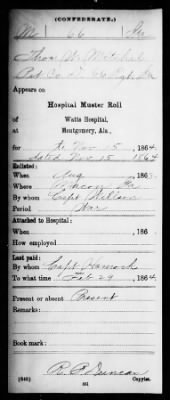 (CONFEDERATE.)
M 66 Ga
Thos W. Mitchel
Pvt Co 66 Reg't Ga
Appears on
Hospital Muster Roll
of
Watts Hospital,
Montgomery, Ala.,
for to Nov 15, 1864
dated Nov 15 1864
Enlisted:
When Aug, 186
Where Macon Ga
By whom Capt
Period War
Attached to Hospital:
When, 186 .
How employed
Last paid:
By whom Capt
To what time Feb 29, 1864.
Present or absent Present
Remarks:
Book mark:
R. P. Duncan
Copyist.